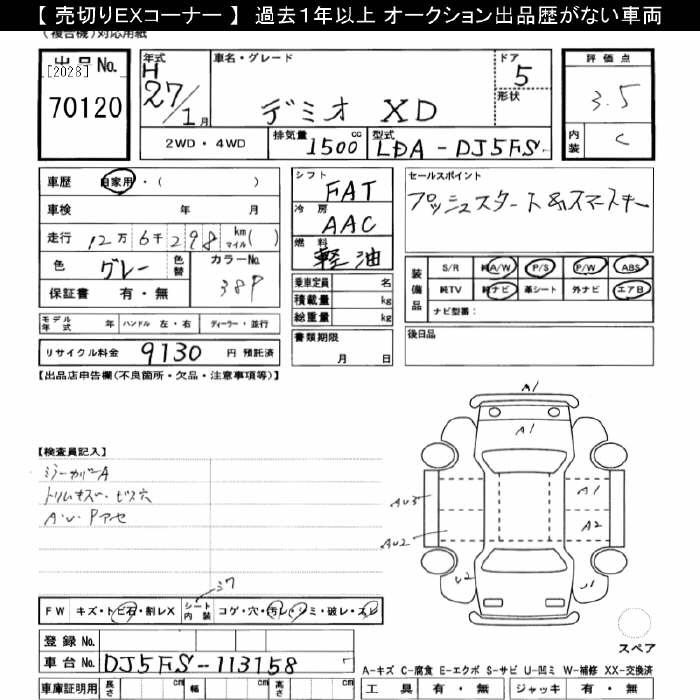 【 売切りEXコーナー 】 過去１年以上 オークション出品歴がない車両
(複合機)対応用紙
出品No.
[2028]
70120
年式
H 27/1 月
車名・グレード
デミオ XD
ドア
5
形状
評価点
3.5
内装
C
2WD・4WD
排気量 1500 cc
型式 LDA-DJ5FS
車歴 自家用・( )
車検 年 月
走行 12万 6千 298 km マイル ( )
色 グレー 色替 カラーNo.
保証書 有・無
シフト FAT
冷房 AAC
燃料 軽油
乗車定員 名
積載量 kg
総重量 kg
書類期限
月 日
セールスポイント
プッシュスタート&スマートキー
装備品
S/R 純A/W P/S P/W ABS
純TV 純ナビ 革シート 外ナビ エアB
ナビ型番：
後日品
モデル年式 年 ハンドル 左・右 ディーラー・並行
リサイクル料金 9130 円 預託済
【出品店申告欄(不良箇所・欠品・注意事項等)】
【検査員記入】
ミラーカバーA
トリムキズ・ビス穴
A・U・Pアセ
A1
A1
AU3
A1
AU2
A2
U2
スペア
FW キズ・トビ石・割レX シート内装 コゲ・穴・汚レ・シミ・破レ・スレ
登録No.
車台No. DJ5FS-113158
車庫証明用 長さ cm 幅 cm 高さ cm
A-キズ C-腐食 E-エクボ S-サビ U-凹ミ W-補修 XX-交換済
工具 有・無 ジャッキ 有・無